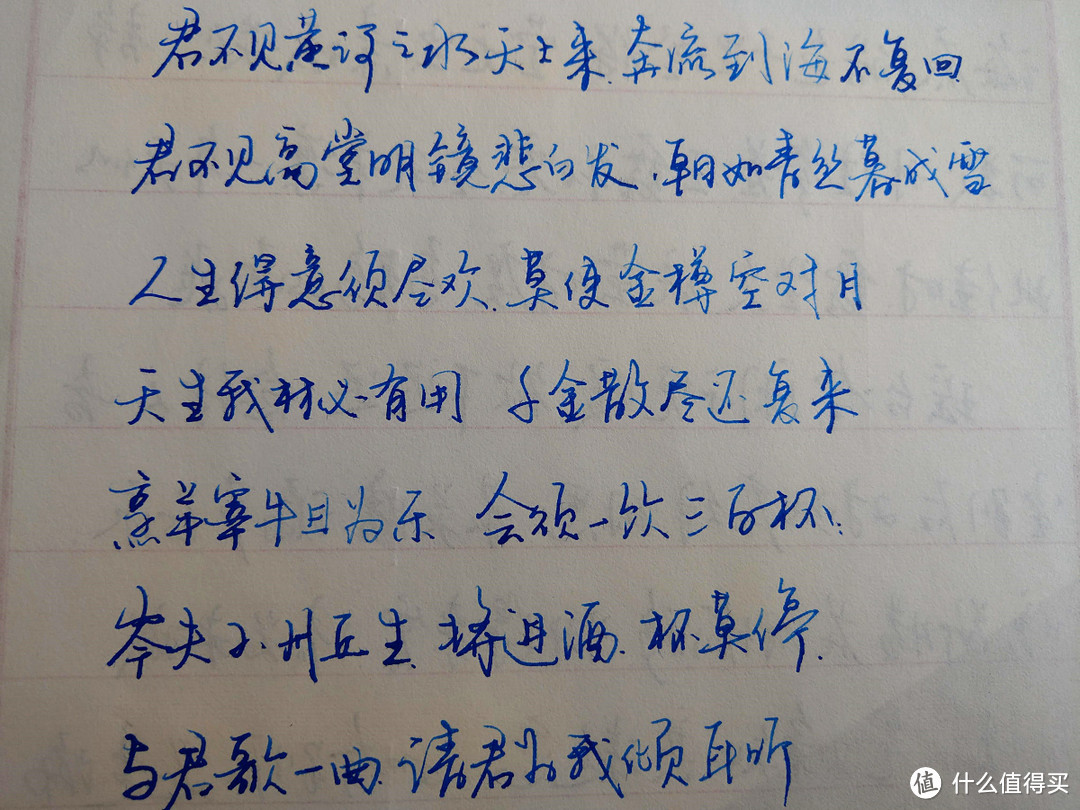 君不见黄河之水天上来.奔流到海不复回
君不见高堂明镜悲白发.朝如青丝暮成雪
人生得意须尽欢.莫使金樽空对月
天生我材必有用 千金散尽还复来
烹羊宰牛且为乐 会须一饮三百杯.
岑夫子.丹丘生.将进酒.杯莫停.
与君歌一曲.请君为我倾耳听
值 什么值得买